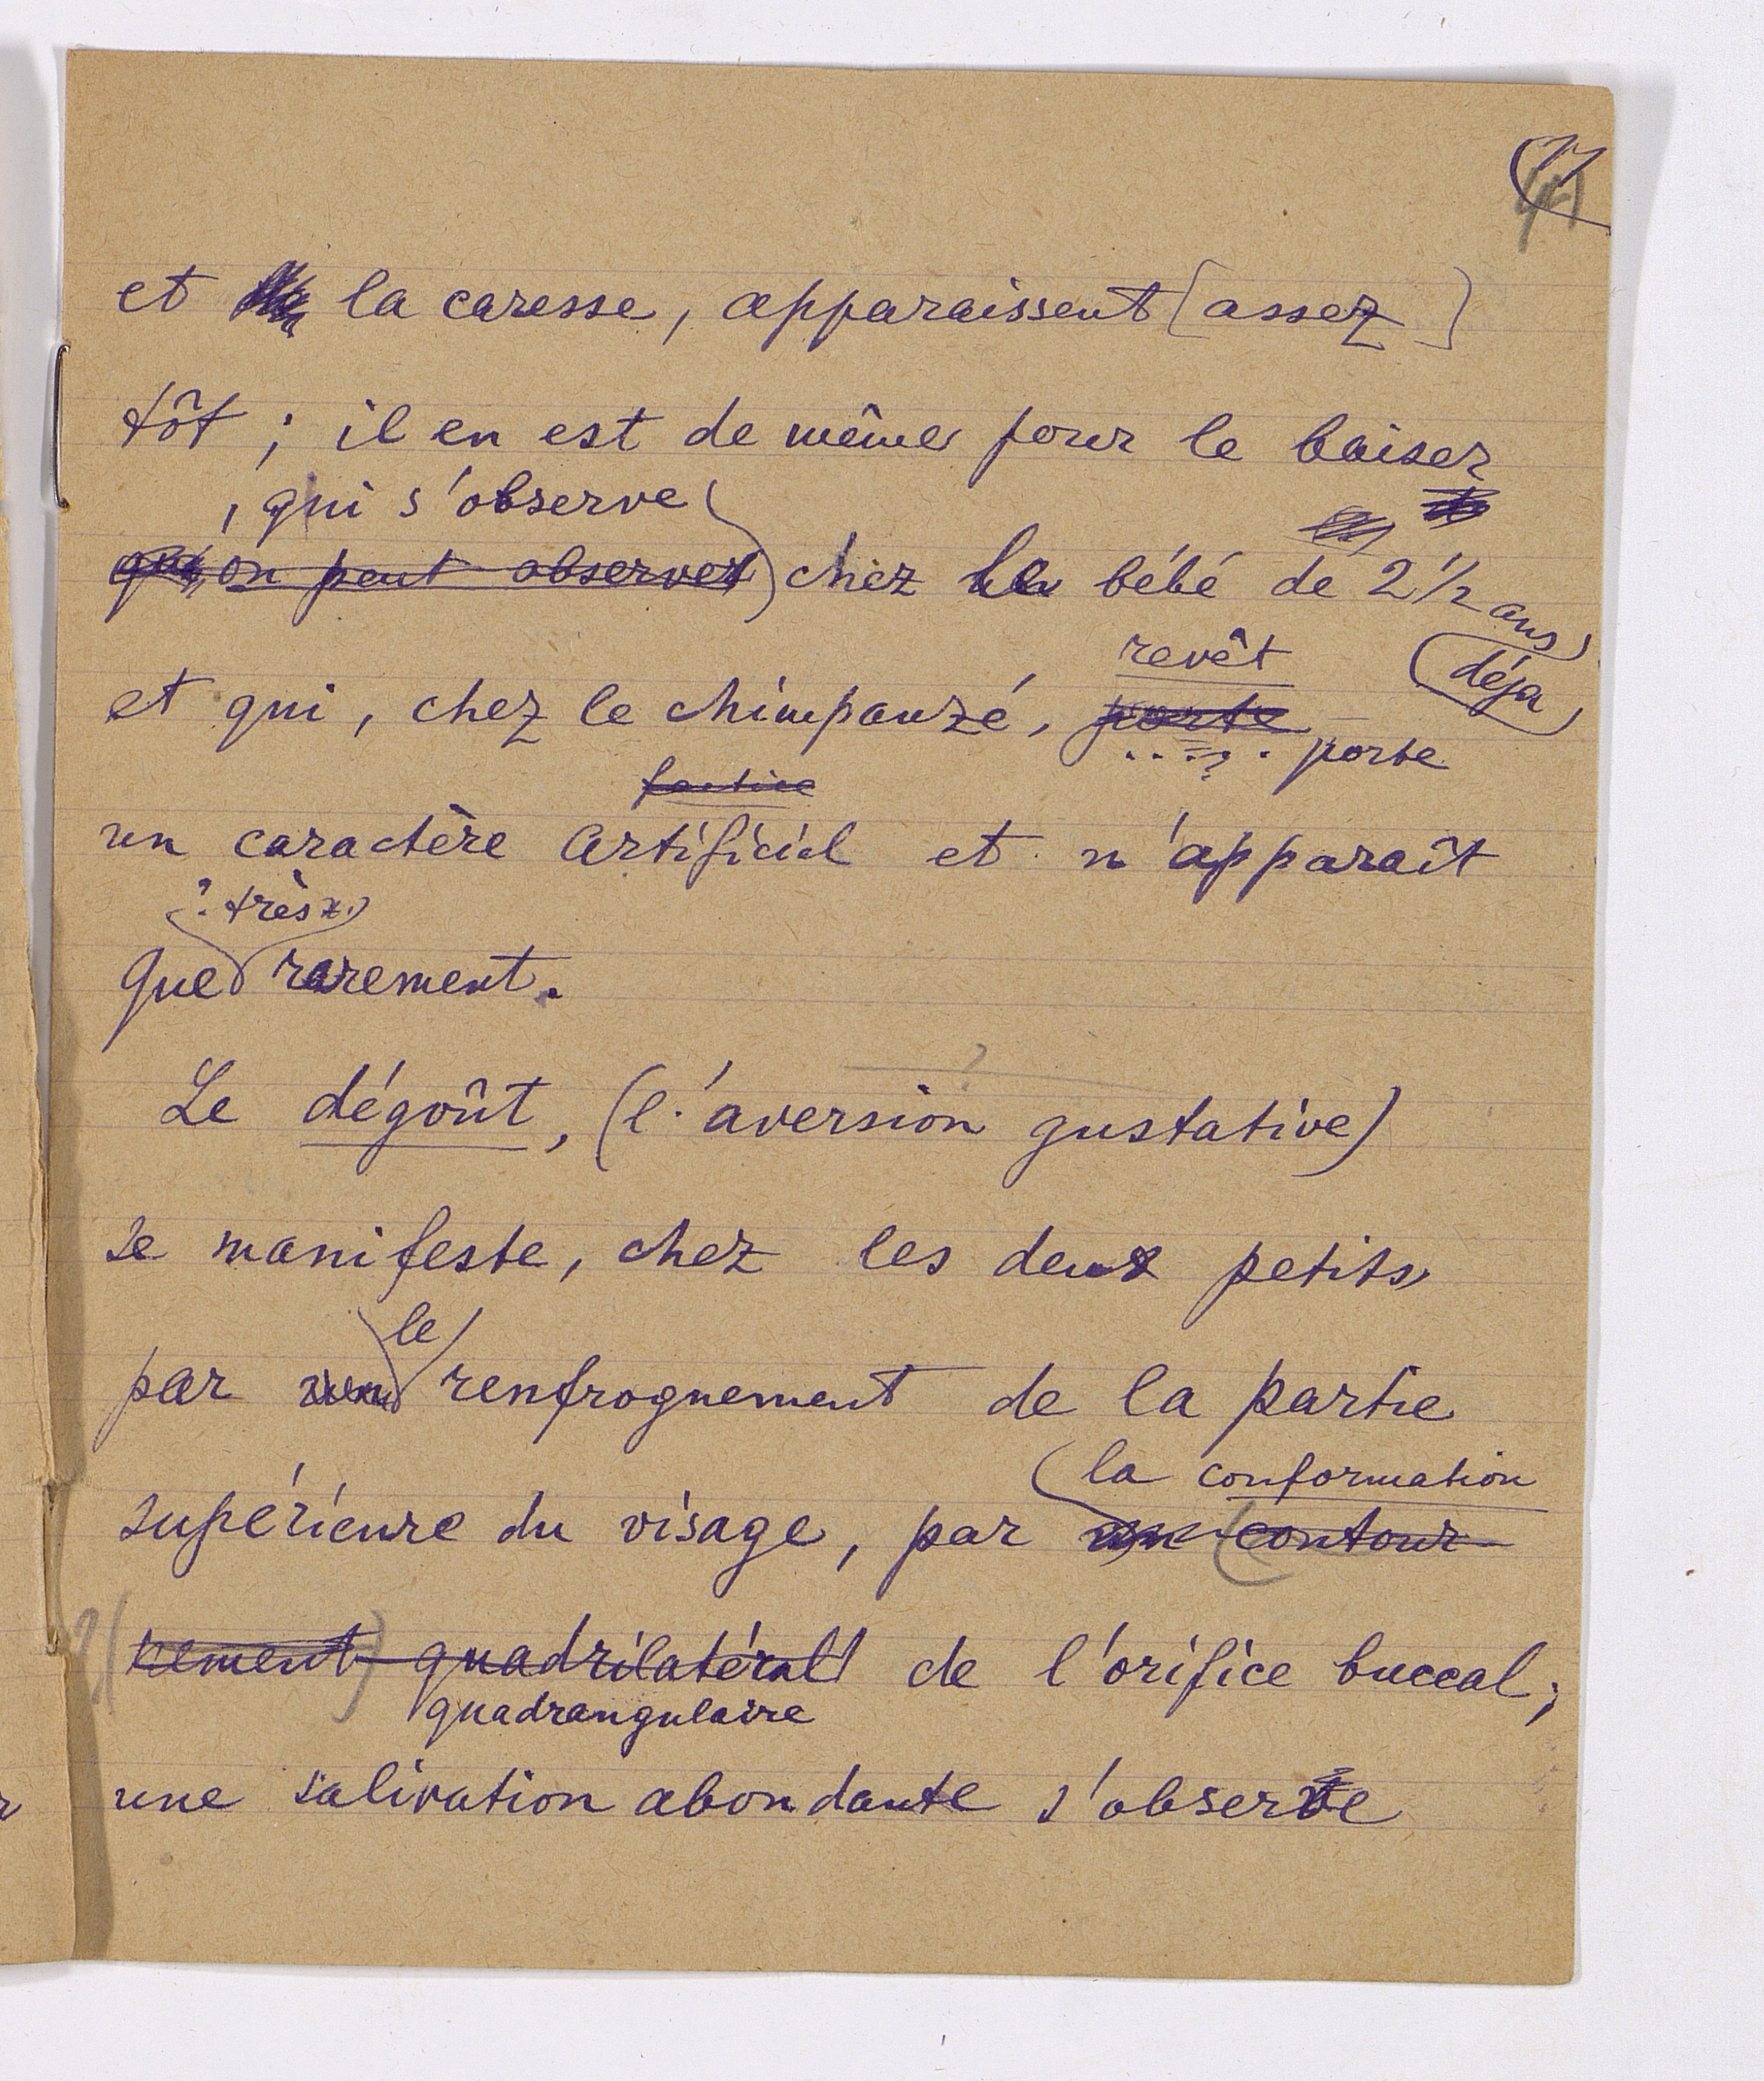 et la caresse, apparaissent [assez]
tôt ; il en est de même pour le baiser
, qui s'observe
on peut observer chez le bébé de 2 1/2 ans
revêt déja
et qui, chez le chimpanzé, porte porte
factice
un caractère artificiel et n'apparaît
? très
que rarement.
Le dégoût, (l'aversion gustative)
se manifeste, chez les deux petits
le
par un renfrognement de la partie
la conformation
supérieure du visage, par un contour
nement quadrilatéral de l'orifice buccal;
quadrangulaire
une salivation abondante s'observe